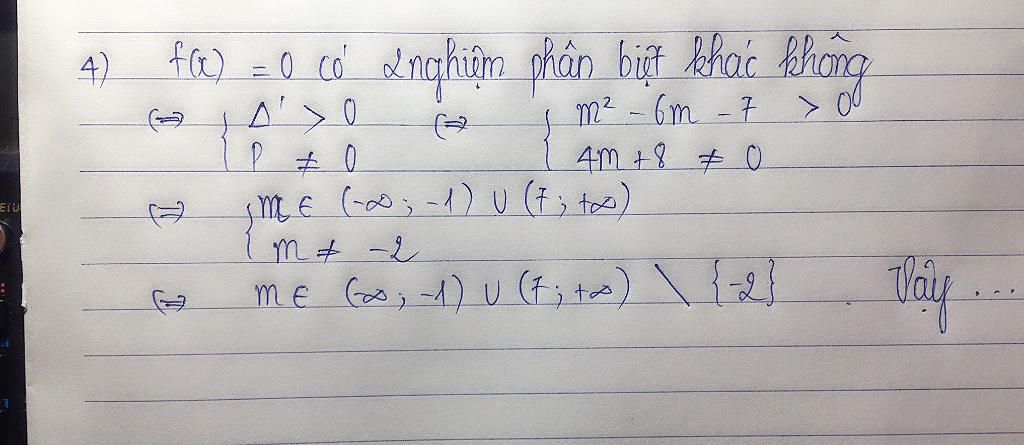 4) f(x) = 0 có 2 nghiệm phân biệt khác không
⇔ { Δ' > 0 ⇔ { m² - 6m - 7 > 0
P ≠ 0 4m + 8 ≠ 0
⇔ { m ∈ (-∞ ; -1) ∪ (7 ; +∞)
m ≠ -2
⇔ m ∈ (-∞ ; -1) ∪ (7 ; +∞) \ {-2} . Vậy ...